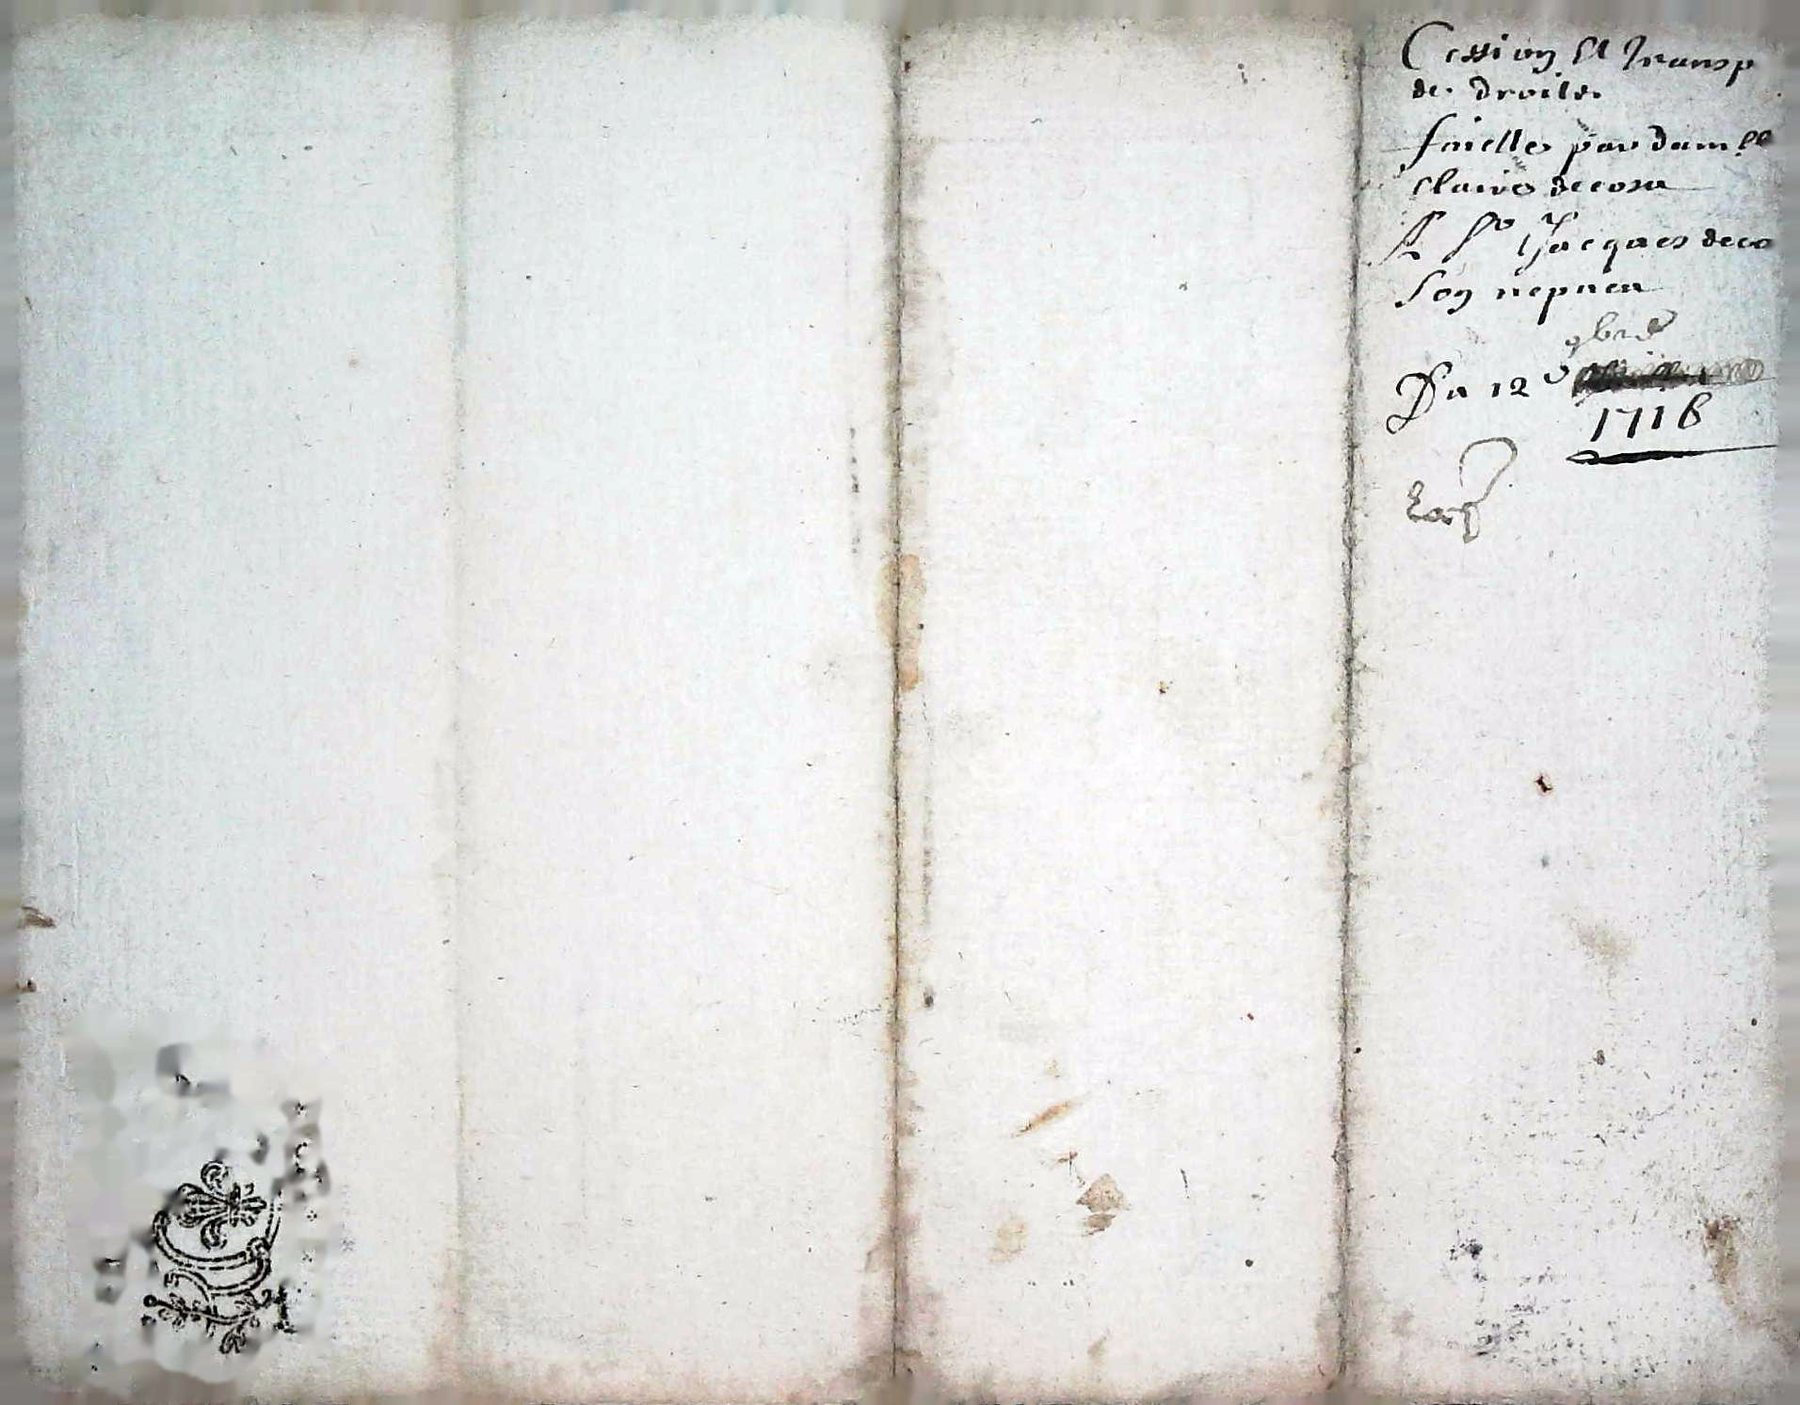 Cession et transp
de droits
faicte par dam.lle
claire decosa
A Sr Jacques deco
son nepueu
9bre
Du 12e
1716